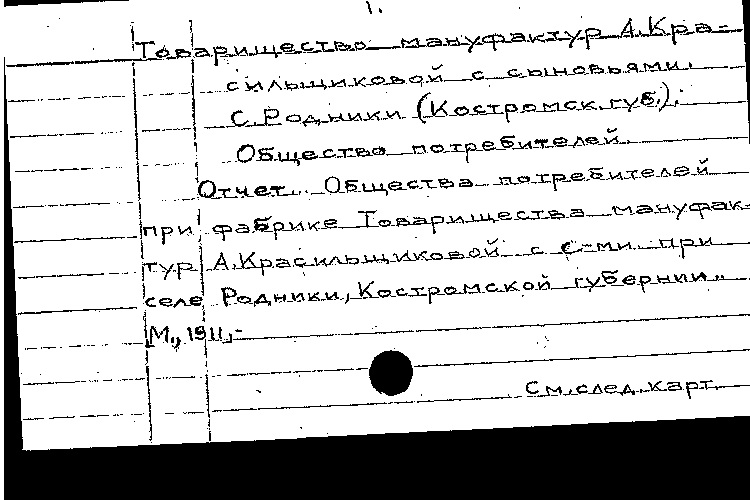 1.
Товарищество мануфактур А.Кра=
сильщиковой с сыновьями.
С.Родники (Костромск.губ.).
Общество потребителей.
Отчет... Общества потребителей
при фабрике Товарищества мануфак-
тур А.Красильщиковой с С-ми при
селе Родники, Костромской губернии..
М., 1911,-
См.след.карт.